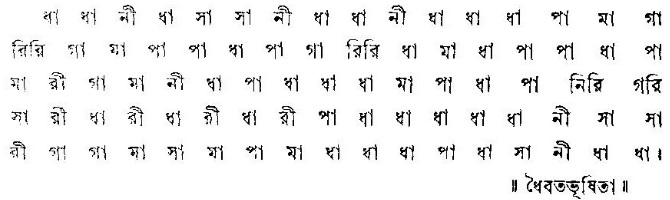 ধা ধা নী ধা সা সা নী ধা ধা নী ধা ধা ধা পা মা গা
রিরি গা মা পা পা ধা পা গা রিরি ধা মা ধা পা পা ধা পা
মা রী গা মা নী ধা পা ধা ধা ধা মা পা ধা পা নিরি গরি
সা রী ধা রী ধা রী ধা রী পা ধা ধা ধা ধা ধা নী সা সা
রী গা গা মা সা মা পা মা ধা ধা ধা পা ধা সা নী ধা ধা।
॥ ধৈবতভূষিতা॥